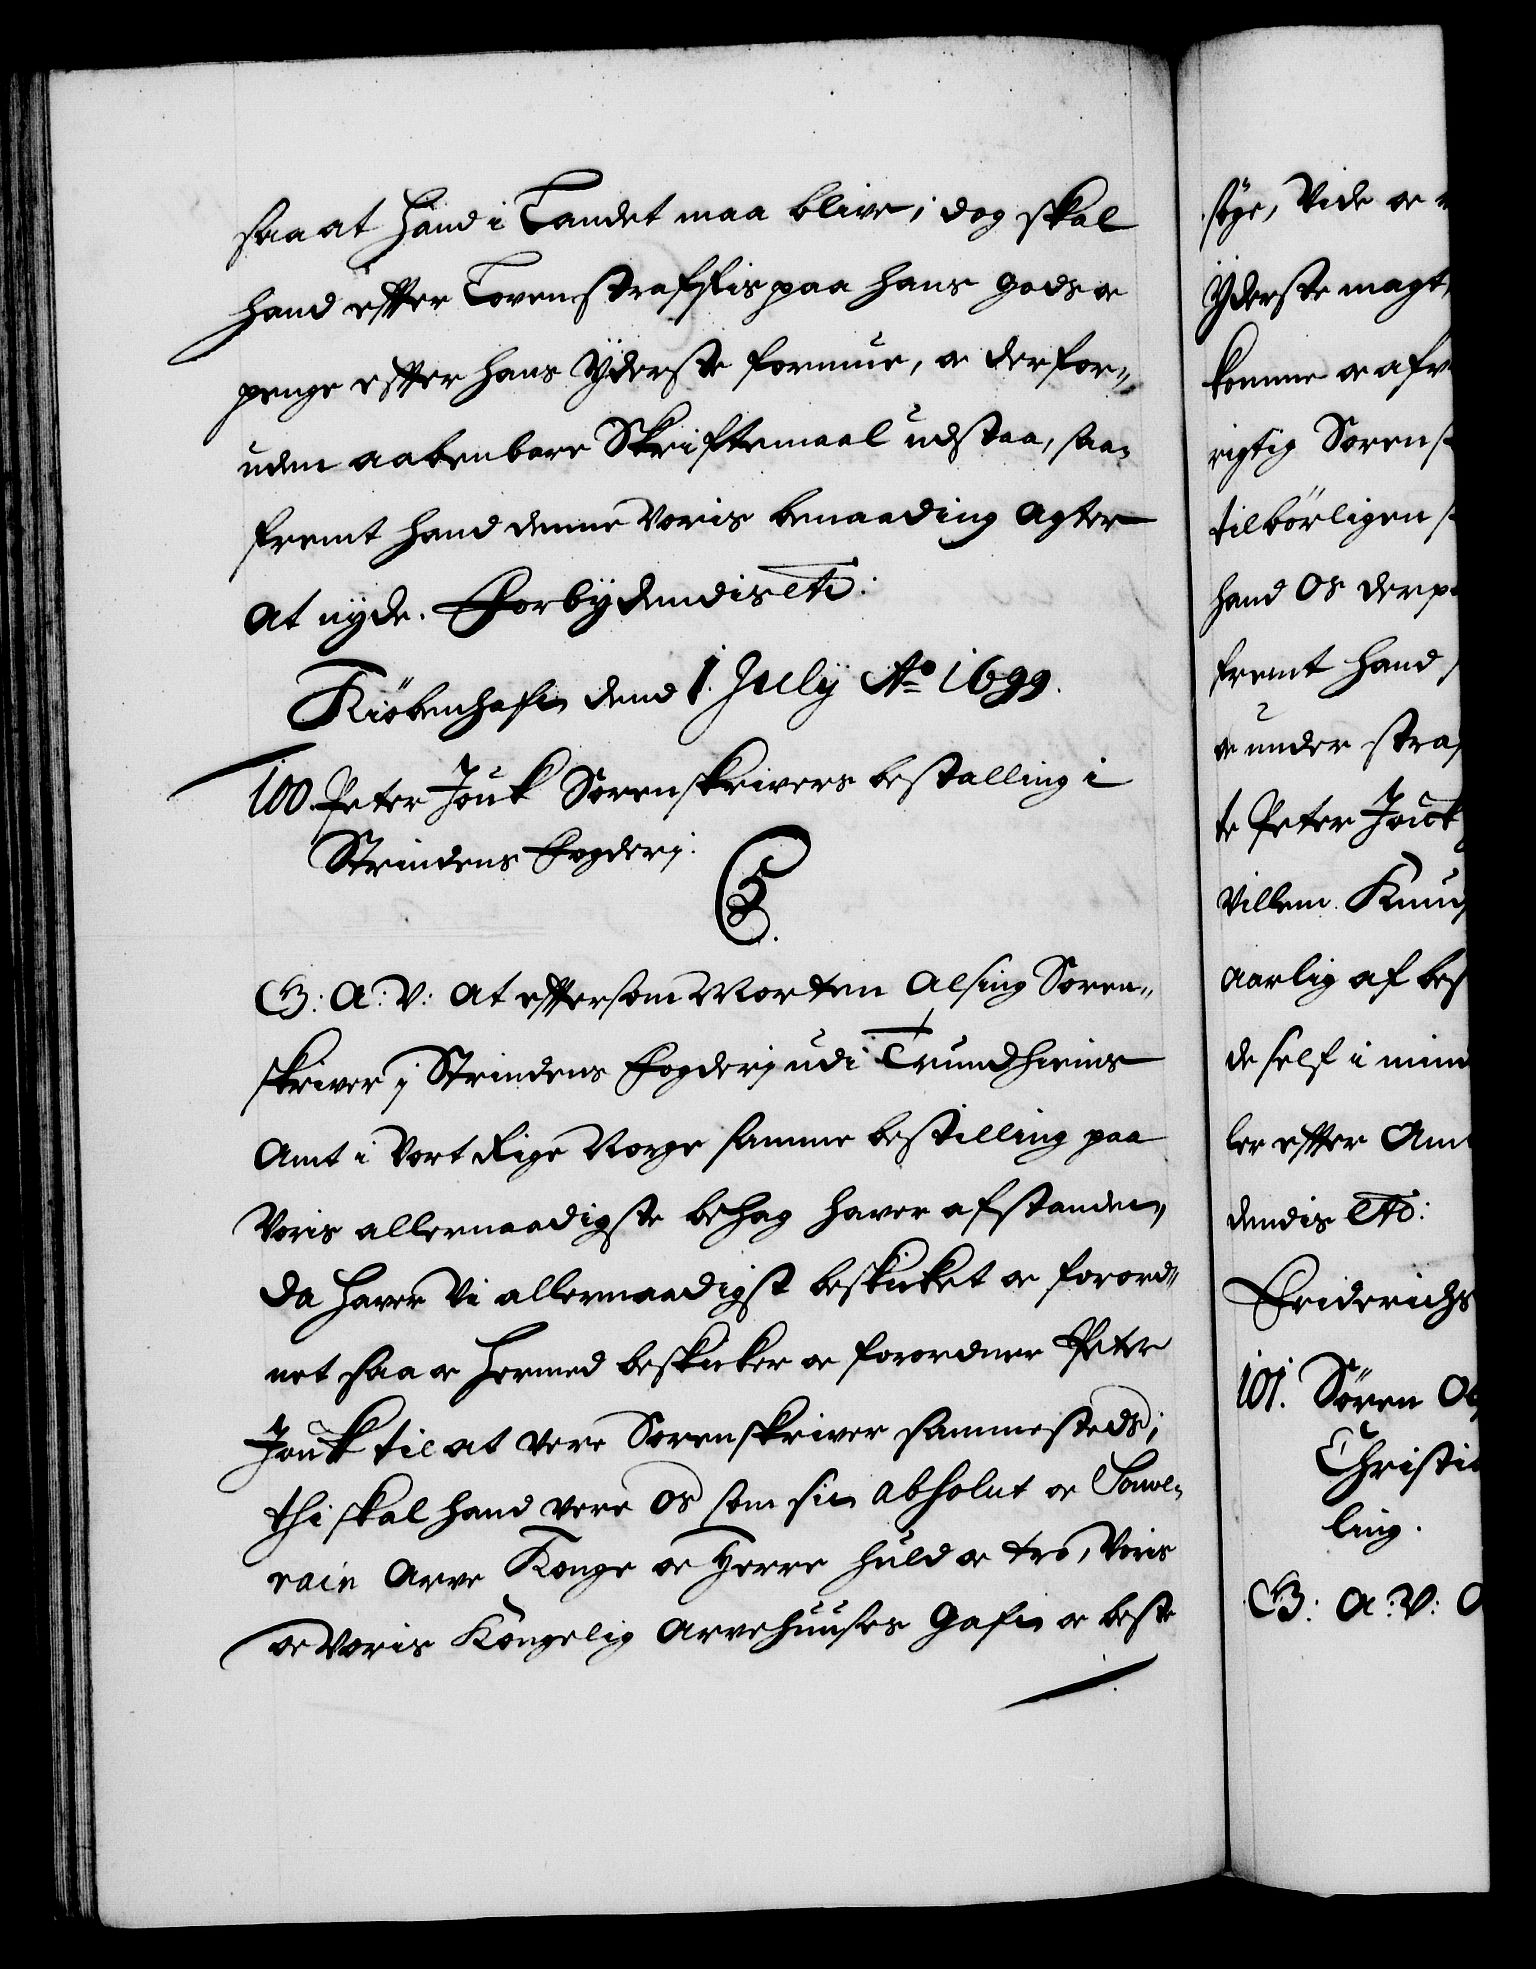 saa at hand i Landet maa blive; dog skal
hand efter Loven straffis paa hans gods oc
penge efter hans Yderste formue, oc derfor„
uden aabenbare Skriftemaal udstaa, saa„
fremt hand denne Voris benaading agter
at nyde. Forbydendis etc:
Kiöbenhafn dend 1. July Ao 1699.
100. Peter Jouk Sorenskrivers bestalling i
Strindens Fogderj.
C5.
G: A: V: at eftersom Morten Alsing Soren„
skriver j Strindens Fogderj udi Trundhiems
Amt i Vort Rige Norge samme bestilling paa
Voris allernaadigste behag haver afstanden,
da haver Vi allernaadigst beskicket oc forord„
net saa oc hermed beskicker oc forordner Peter
Jouk til at vere Sorenskriver sammesteds;
thi skal hand vere Os som sin absolut oc Souve„
rain Arve Konge oc Herre huld oc tro, Voris
oc Voris Kongelig Arvehuuses Gafn oc beste
söge, Vide oc
Yderste magt,
komme oc afv
rigtig Sorens
tilbörligen
hand Os derp
fremt hand
oc under straf
te Peter Jouk
Villem Knud
aarlig af bes
de self i min
ler efter Am
dendis etc:
Friderichs
101. Sören
Christi
ling.
G: A: V: